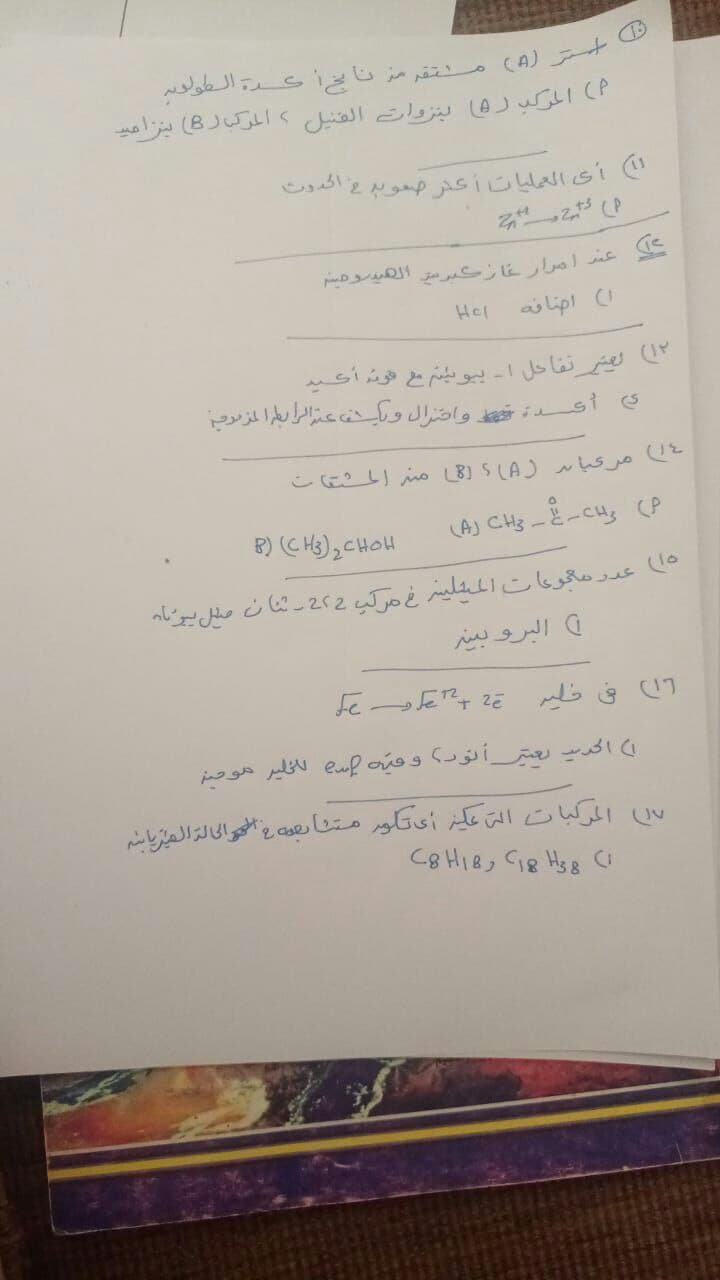 ١٠) استر (A) مشتقه من ناتج أكسدة الطولوين
٢) المركب (A) بنزوات الفنيل ، المركب (B) بنزاميد
١١) أى العمليات أكثر صعوبه فى الحدوث
٢) Zn⁺² → Zn⁺³
١٢) عند امرار غاز كبريتيد الهيدروجين
١) اضافه HCl
١٣) يعتبر تفاعل ١- بيوتين مع فوق أكسيد
ى) أكسدة واختزال ويكشف عن الرابطه المزدوجة
١٤) مركبان (A) ، (B) من المشتقات
٢) (A) CH3 - C - CH3 B) (CH3)2 CHOH
O
١٥) عدد مجموعات الميثيلين فى مركب 2,2 - ثنائى ميثيل بيوتان
١) البروبين
١٦) فى خليه Fe → Fe⁺² + 2e⁻
١) الحديد يعتبر أنود ، وقيمة emf للخليه موجبه
١٧) المركبات التى يمكن أن تكون متشابهه فى الحالة الفيزيائيه
١) C8H18 , C18H38